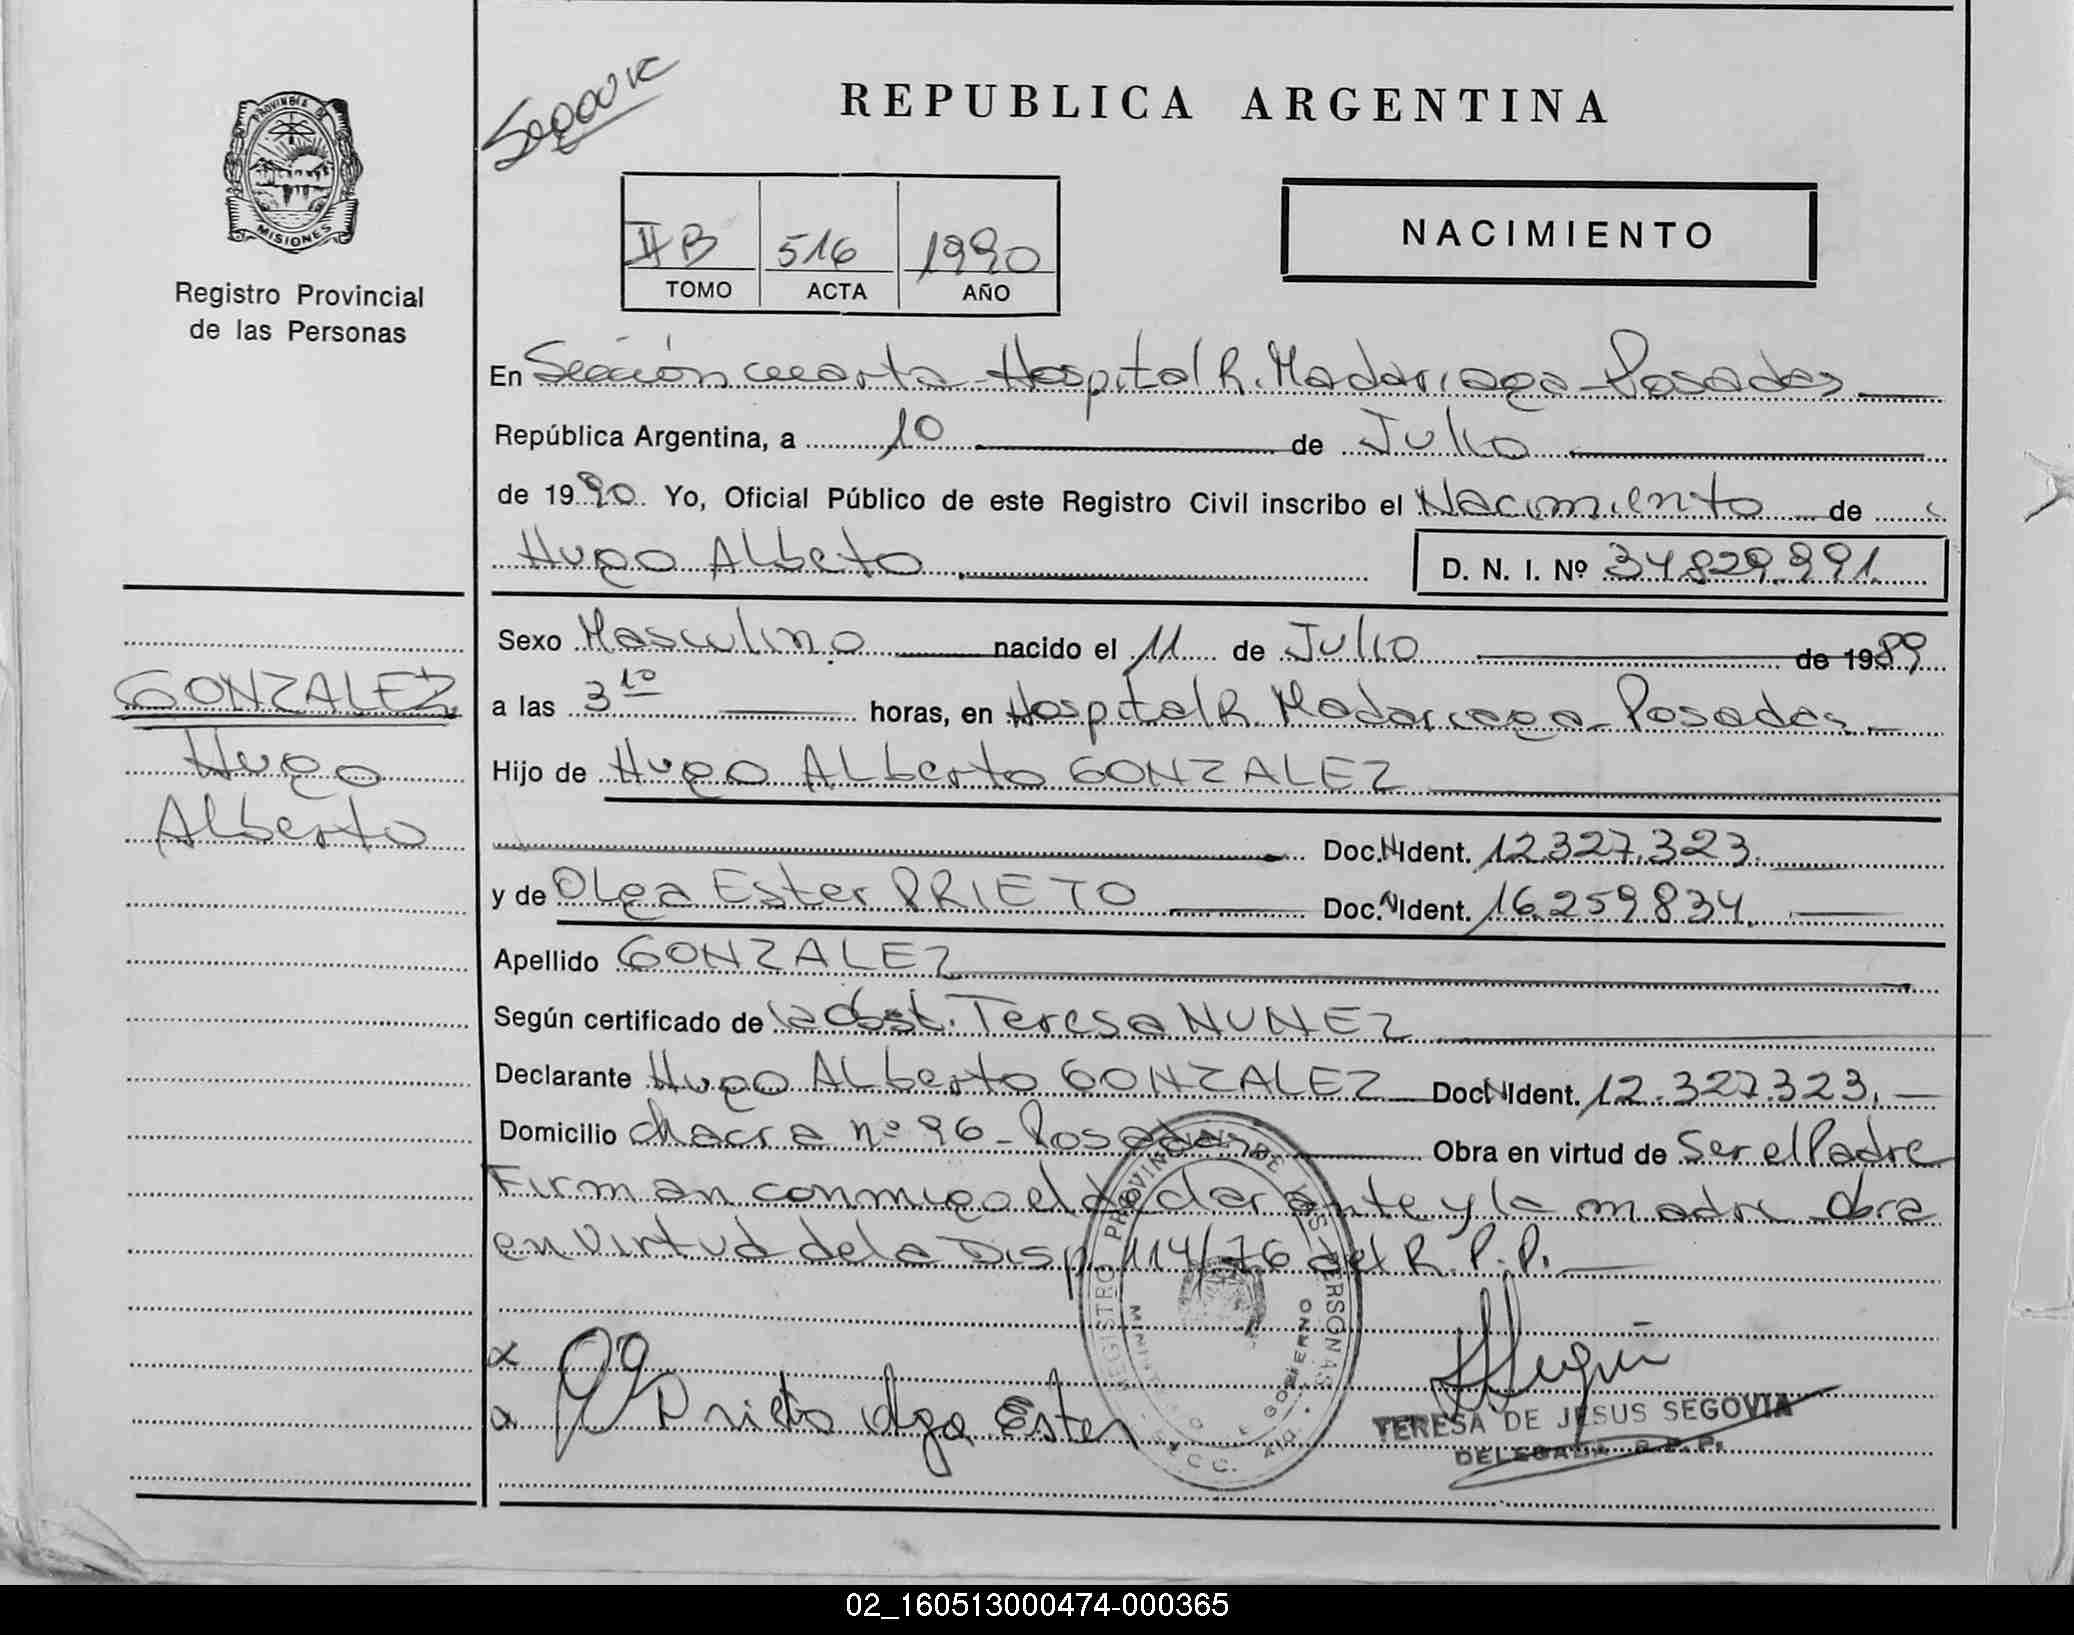 Segovia
REPUBLICA ARGENTINA
PROVINCIA DE
MISIONES
Registro Provincial
de las Personas
NACIMIENTO
II B 516 1990
TOMO ACTA AÑO
En Sección cuarta - Hospital R. Madariaga - Posadas
República Argentina, a 10 de Julio
de 1990. Yo, Oficial Público de este Registro Civil inscribo el Nacimiento de
Hugo Albeto D. N. I. Nº 34.829.991.
Sexo Masculino nacido el 11 de Julio de 1989
a las 3 10 horas, en Hospital R. Madariaga - Posadas.-
Hijo de Hugo Alberto GONZALEZ
Doc. N Ident. 12.327.323.
y de Olga Ester PRIETO Doc. N Ident. 16.259.834.
Apellido GONZALEZ
Según certificado de la Obst. Teresa NUNEZ
Declarante Hugo Alberto GONZALEZ Doc N Ident. 12.327.323.-
Domicilio chacra nº 96 - Posadas Obra en virtud de Ser el Padre
Firman conmigo el declarante y la madre obra
en virtud de la Disp. 114/76 del R. P. P.
GONZALEZ
Hugo
Alberto
x
x Prieto olga Ester
REGISTRO PROVINCIAL DE LAS PERSONAS
GOBIERNO
TERESA DE JESUS SEGOVIA
DELEGADA R. P. P.
02_160513000474-000365